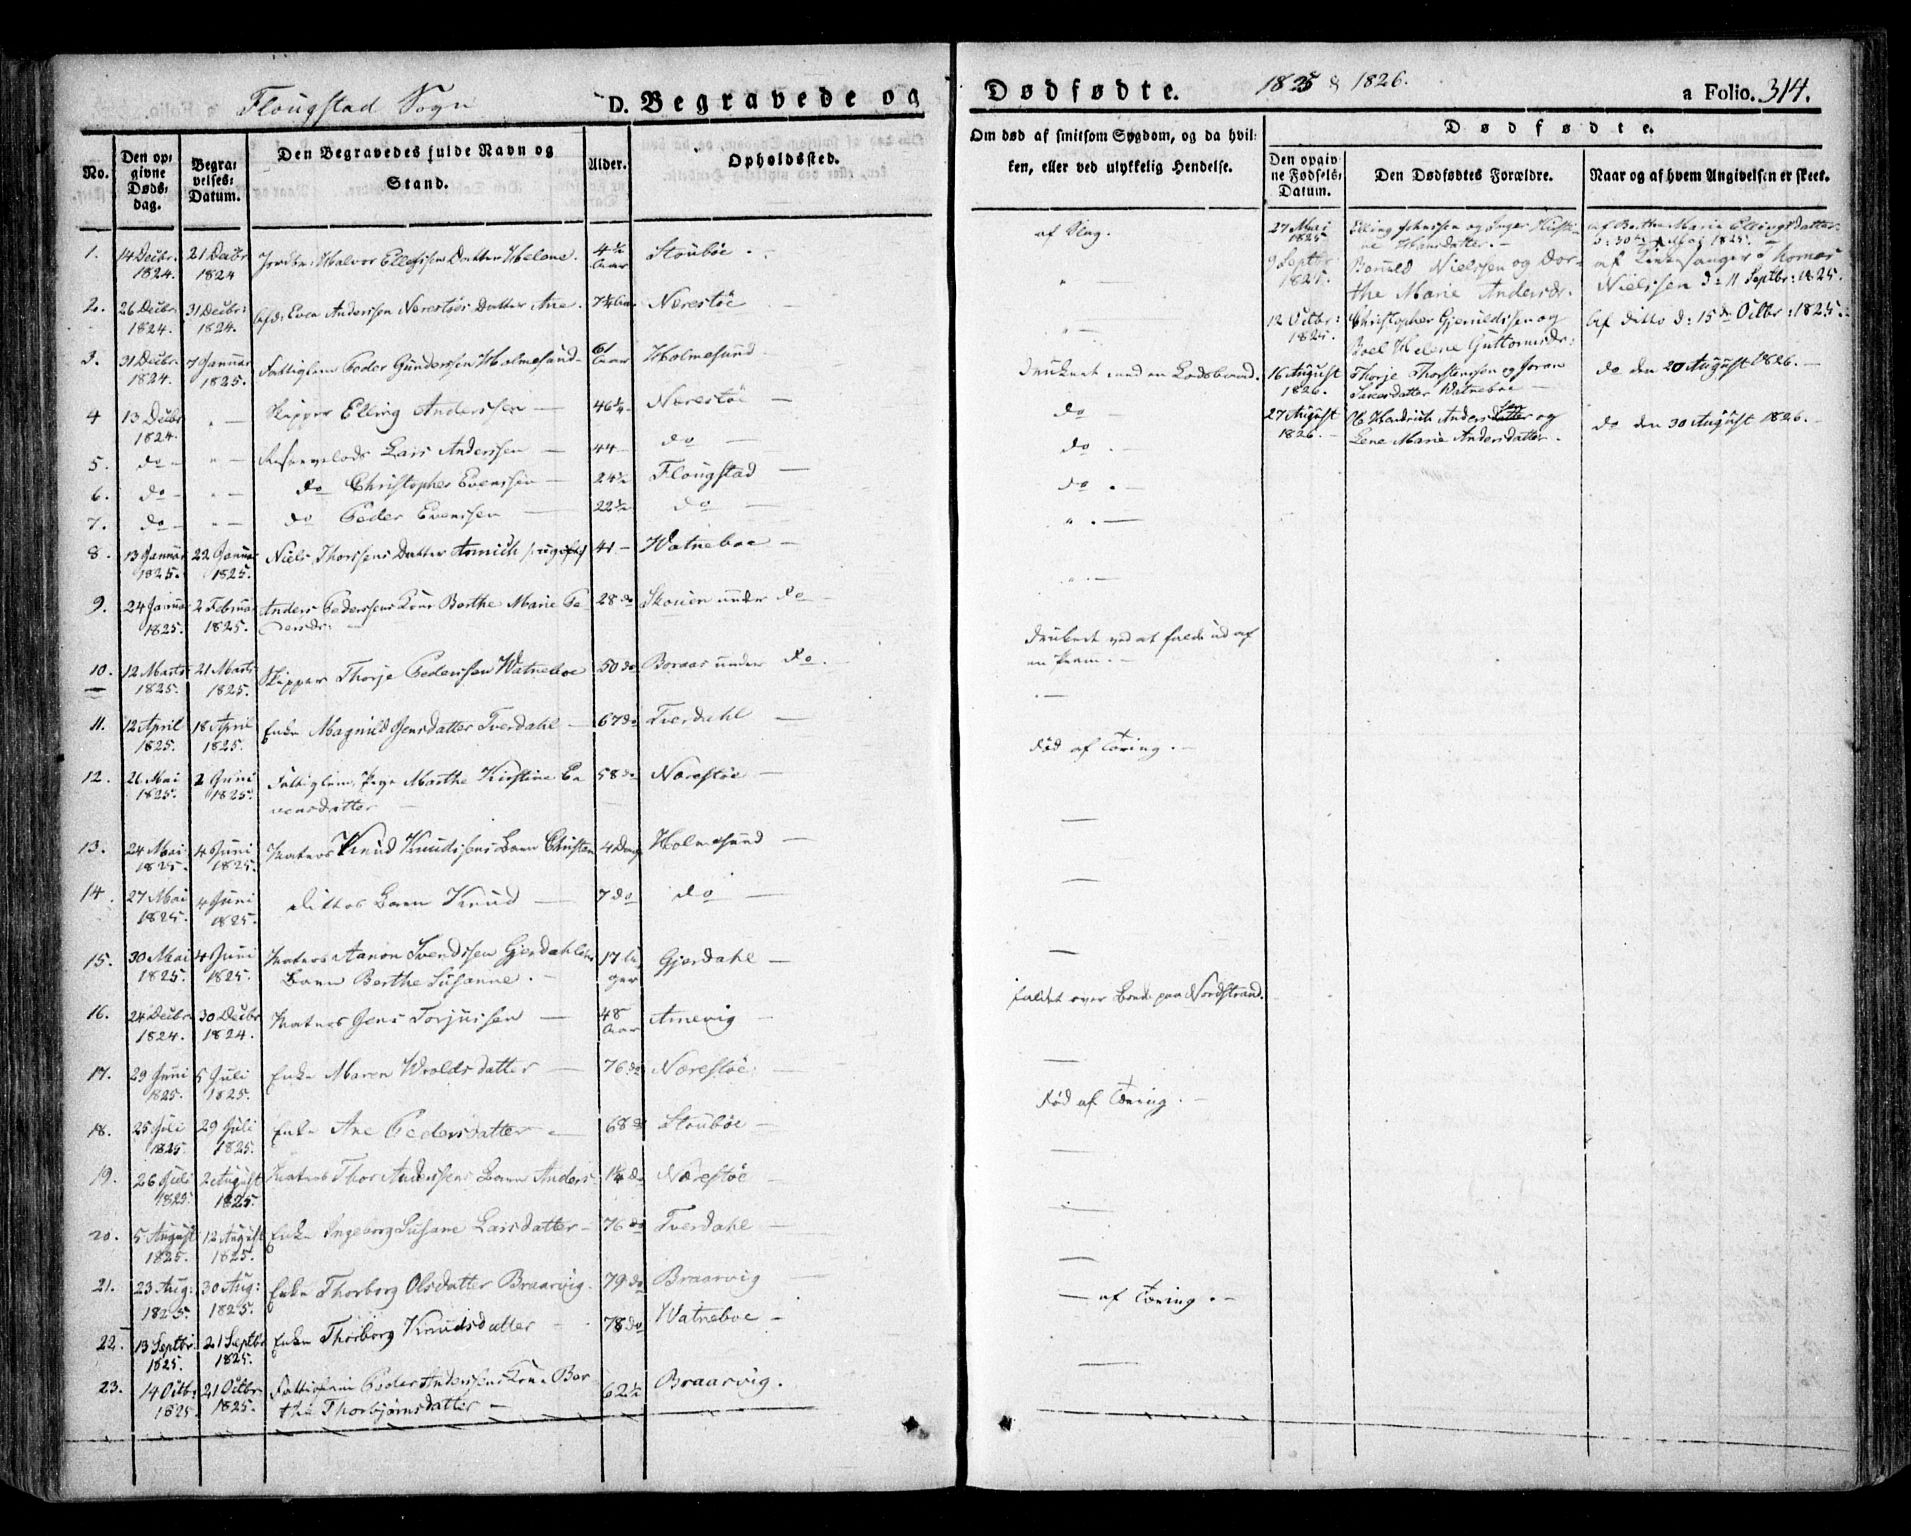 Flougstad Sogn
D. Begravede og
No.
Den op:
givne
Døds:
dag.
Begra:
velses:
Datum.
Den Begravedes fulde Navn og
Stand.
Alder.
Opholdssted.
1. 14 Decbr. 1824. 21 Decbr 1824 Halvor Datter Helene. 4 1/2 Aar Stoubøe
2. 26 Decbr. 1824. 31 Decbr: 1824. Even Anderssen Nærestøes Datter Ane. Nærestøe
3. 31 Decbr. 1824. 7 Januar 1825. Fattiglem Peder Gunderssen Holmesund 61 Aar Holmesund
4 13 Decbr 1824. " Skipper Elling Anderssen 46 1/4 Nærestøe
5. do " Lars Anderssen 44 do
6. do " do Christopher Evenssen 24 1/2 Flougstad
7. do " do Peder Evenssen 22 1/2 do
8. 13 Januar 1825. 22 Januar 1825. Niels Thorssens Datter 41 Watneboe
9. 24 Januar 1825. 2 Februar 1825. Anders Pederssens Kone Berthe Marie Pe
dersdr: 28 do Skouen under do
10. 12 Marts 1825. 21 Marts 1825. Skipper Thorje Pederssen Watneboe 50 do Boraas under do.
11. 12 April 1825. 18 April 1825. Enke Magnild Jensdatter Tverdahl 67 do Tverdahl
12. 26 Mai 1825. 2 Juni 1825. Fattiglem, Pige Marthe Kirstine E
vensdatter 58 do Nærestøe
13. 24 Mai 1825. 4 Juni 1825. Matros Knud Knudssens Barn Christen 4 Dage Holmesund
14. 27 Mai 1825. 4 Juni 1825. Dittos Barn Knud 7 do do
15. 30 Mai 1825. 4 Juni 1825. Matros Aanon Svendssen Gjerdahls
Barn Berthe Susanne. 17 Uger Gjerdahl
16. 24 Decbr 1824. 30 Decbr 1824. Matros Jens Torjussen 48 Aar Arnevig
17. 29 Juni 1825. 5 Juli 1825. Enke Maren Wroldsdatter 76 do Nærestøe
18. 25 Juli 1825. 29 Juli 1825. Enke Ane Pedersdatter 68 do Stoubøe
19. 26 Juli 1825. 2 August 1825. Matros Thor Anderssens Barn Anders 1 1/4 do Nærestøe
20. 5 August 1825. 12 August 1825. Enke Ingeborg Susane Larsdatter 76 do Tverdahl
21. 23 Aug: 1825. 30 Aug: 1825. Enke Thorborg Olsdatter Braarvig. 79 do Braarvig
22. 13 Septbr: 1825. 21 Septbr 1825. Enke Thorborg Knudsdatter 78 do Watneboe
23. 14 Octb: 1825. 21 Octbr. 1825. Fattiglem Peder Anderssens Kone Ber
the Thorbjørnsdatter 62 1/2 Braarvig.
Dødfødte.
1825 & 1826.
a Folio. 314.
Om død af smitsom Sygdom, og da hvil:
ken, eller ved ulykkelig Hendelse.
Dødfødte.
Den opgiv:
ne Fødsels:
Datum.
Den Dødfødtes Forældre.
Naar og af hvem Angivelsen er skeet.
druknet med en Lodsbaad.
do
do
do
druknet ved at falde ud af
en Pram.
død af Tæring.
faldet over Bord paa Nordstrand.
død af Tæring.
af Tæring.
27 Mai 1825 Elling Johnssen og Inger Kirsti-
ne Hansdatter. af Berthe Marie Ellingsdatter
d: 30te Mai 1825.
9 Septbr: 1825. Nielssen og Dor-
the Marie Andersdr. af Kirkesanger Thomas
Nielssen d: 11 Septbr: 1825.
12 Octbr: 1825. Christopher Gjeruldssen og
Boel Helene Guttormsdr: Af ditto d: 15de Octbr: 1825.
16 August 1826. Thorje Thorstenssen og Joran
Watneboe do den 20 August 1826.
27 August 1826. Anderssen og
Lene Marie Andersdatter. do den 30 August 1826.